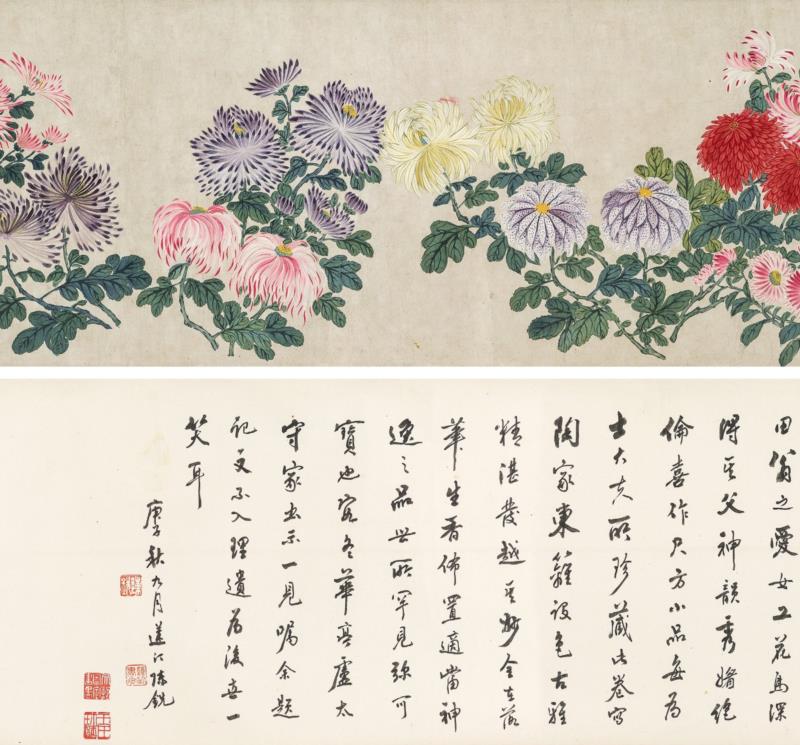 田翁之愛女工花鳥深
得其父神韻秀媚絕
倫喜作尺方小品每為
士大夫所珍藏此卷寫
陶家東籬設色古雅
精湛發越其妙全在落
華生香佈置適當神
逸之品世所罕見弥可
寶也客冬華亭盧太
守家出示一見囑余題
記文不入理遺為後世一
笑耳
庚子秋九月蓬江陳銳